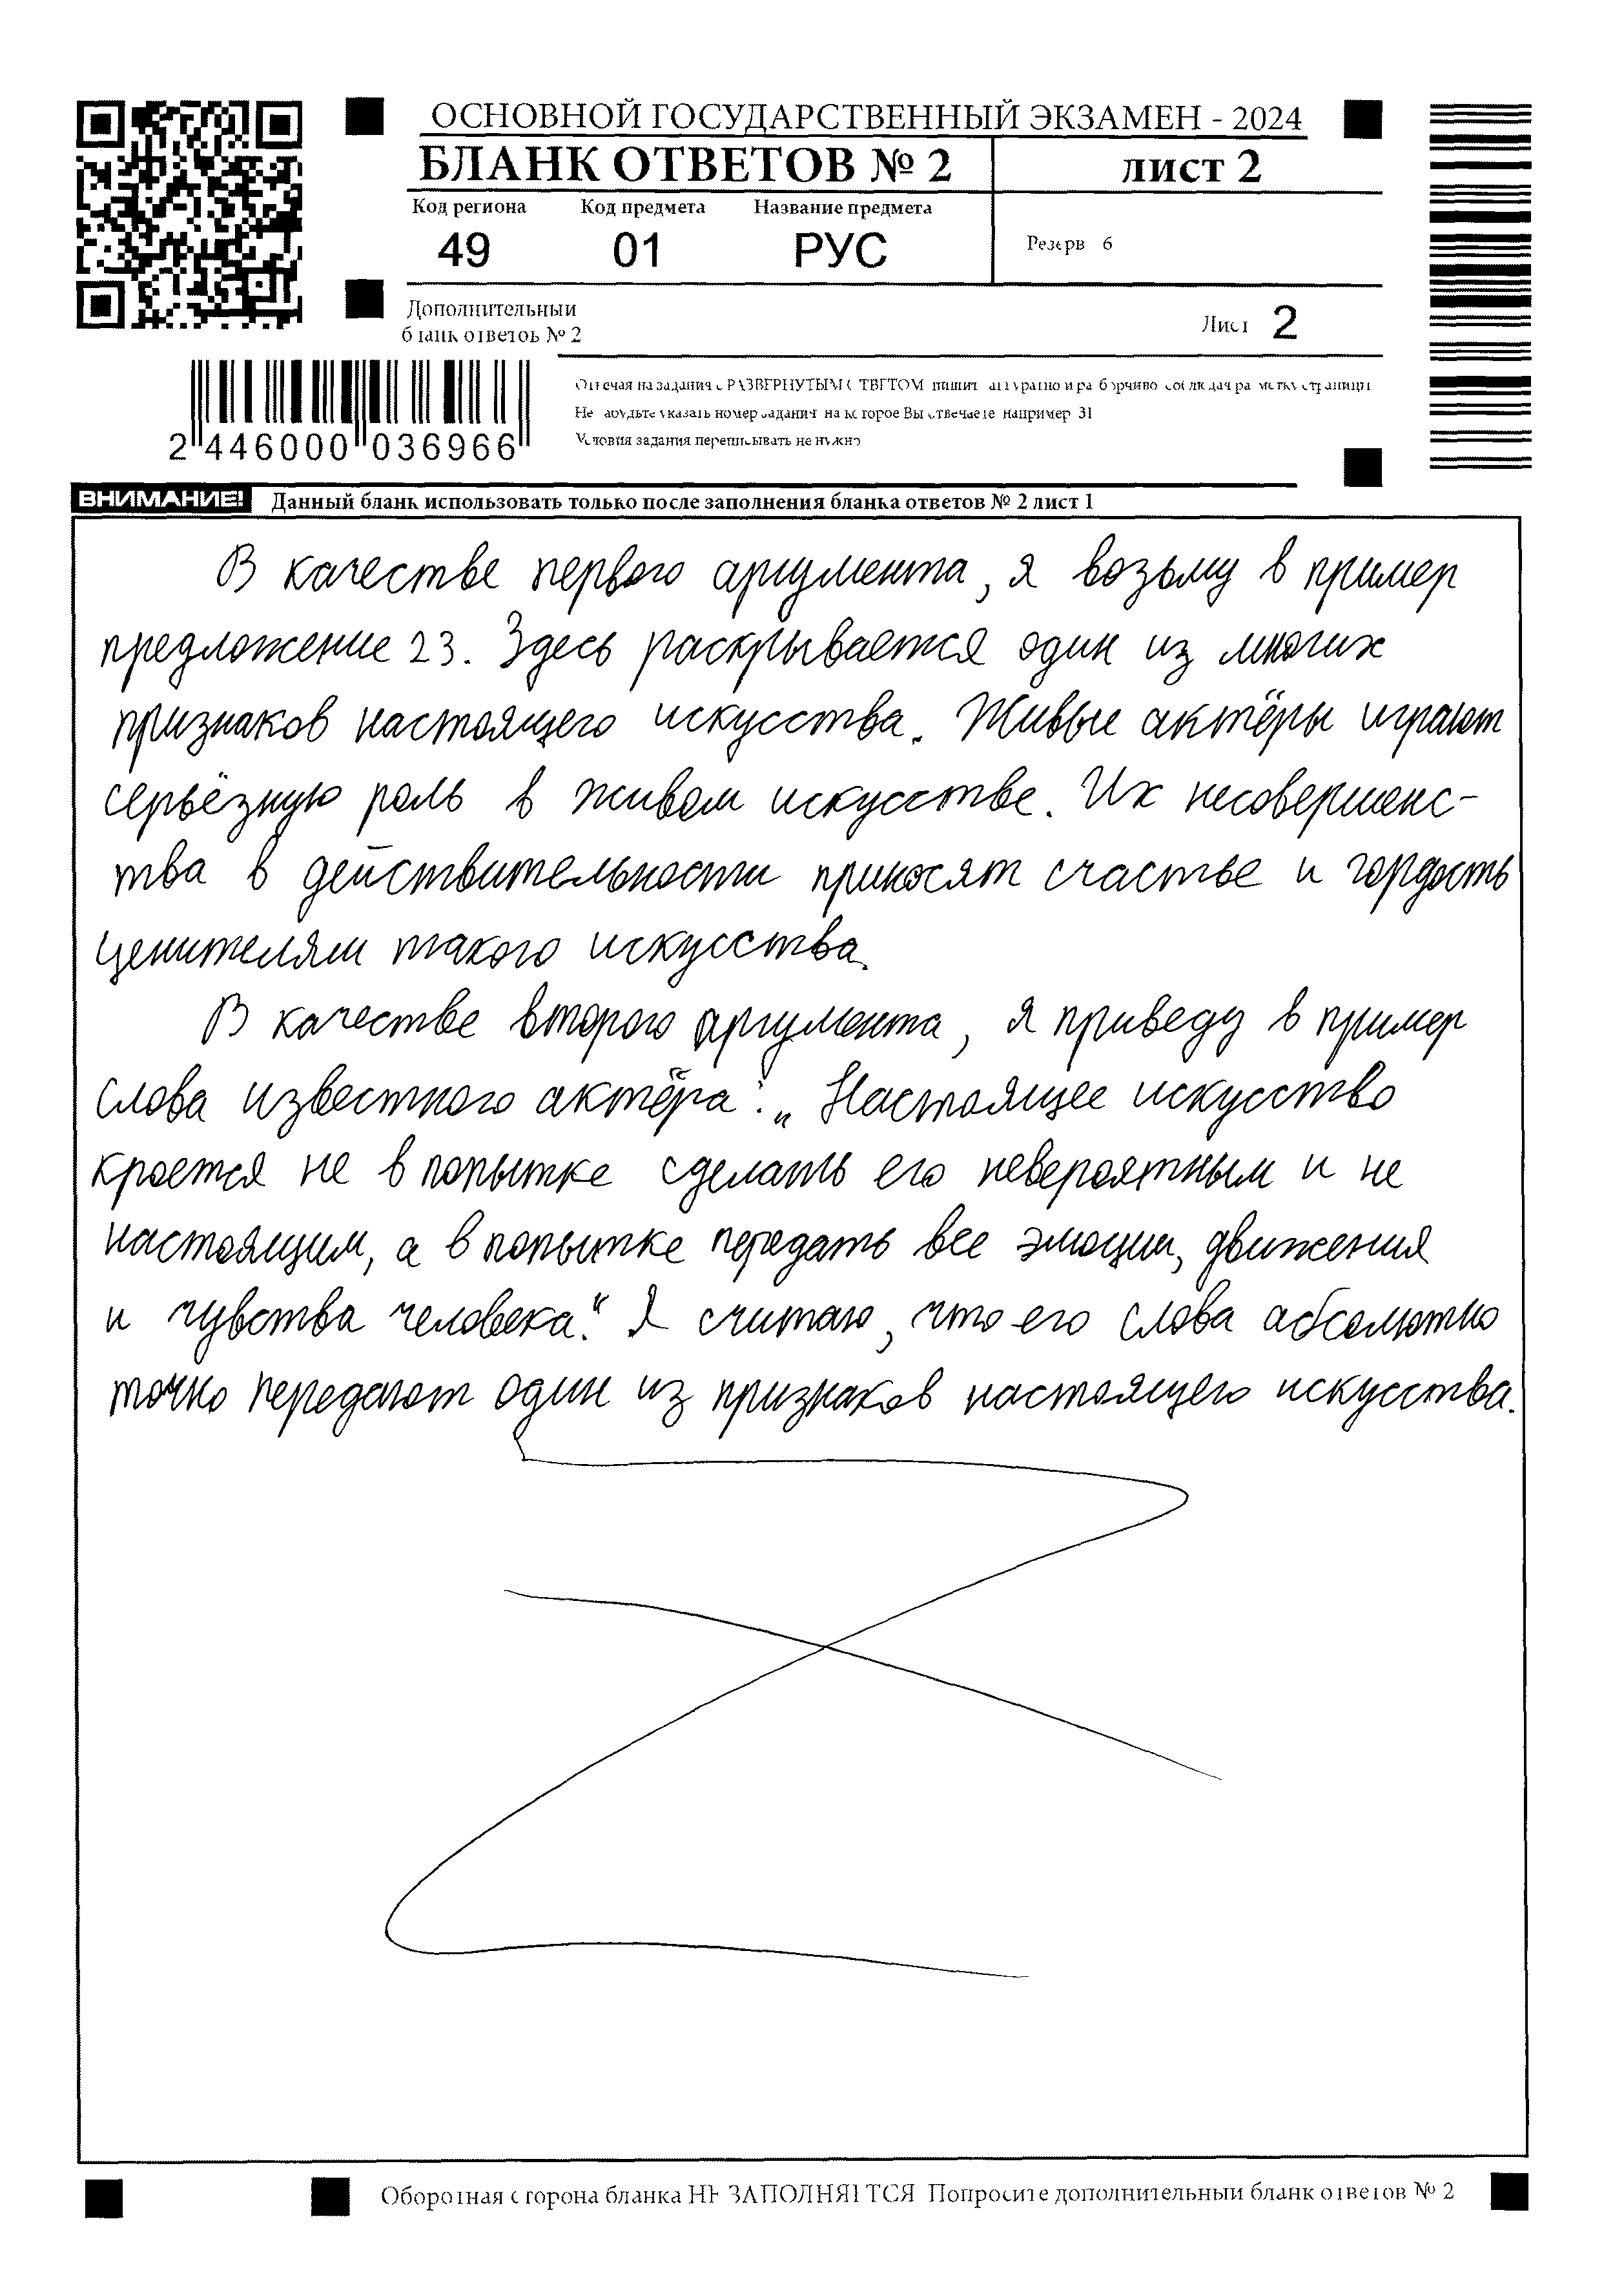 ОСНОВНОЙ ГОСУДАРСТВЕННЫЙ ЭКЗАМЕН - 2024
БЛАНК ОТВЕТОВ № 2
лист 2
Код региона Код предмета Название предмета
49 01 РУС
Резерв 6
Дополнительный
бланк ответов № 2
Лист 2
2 446000 036966
Отвечая на задания с РАЗВЕРНУТЫМ ОТВЕТОМ пишите аккуратно и разборчиво соблюдая разметку страницы
Не забудьте указать номер задания на которое Вы отвечаете например 31
Условия задания переписывать не нужно
ВНИМАНИЕ! Данный бланк использовать только после заполнения бланка ответов № 2 лист 1
В качестве первого аргумента, я возьму в пример
предложение 23. Здесь раскрывается один из многих
признаков настоящего искусства. Живые актёры играют
серьёзную роль в живом искусстве. Их несовершенс-
тва в действительности приносят счастье и гордость
ценителям такого искусства.
В качестве второго аргумента, я приведу в пример
слова известного актёра: „Настоящее искусство
кроется не в попытке сделать его невероятным и не
настоящим, а в попытке передать все эмоции, движения
и чувства человека“. Я считаю, что его слова абсолютно
точно передают один из признаков настоящего искусства.
Оборотная сторона бланка НЕ ЗАПОЛНЯЕТСЯ Попросите дополнительный бланк ответов № 2